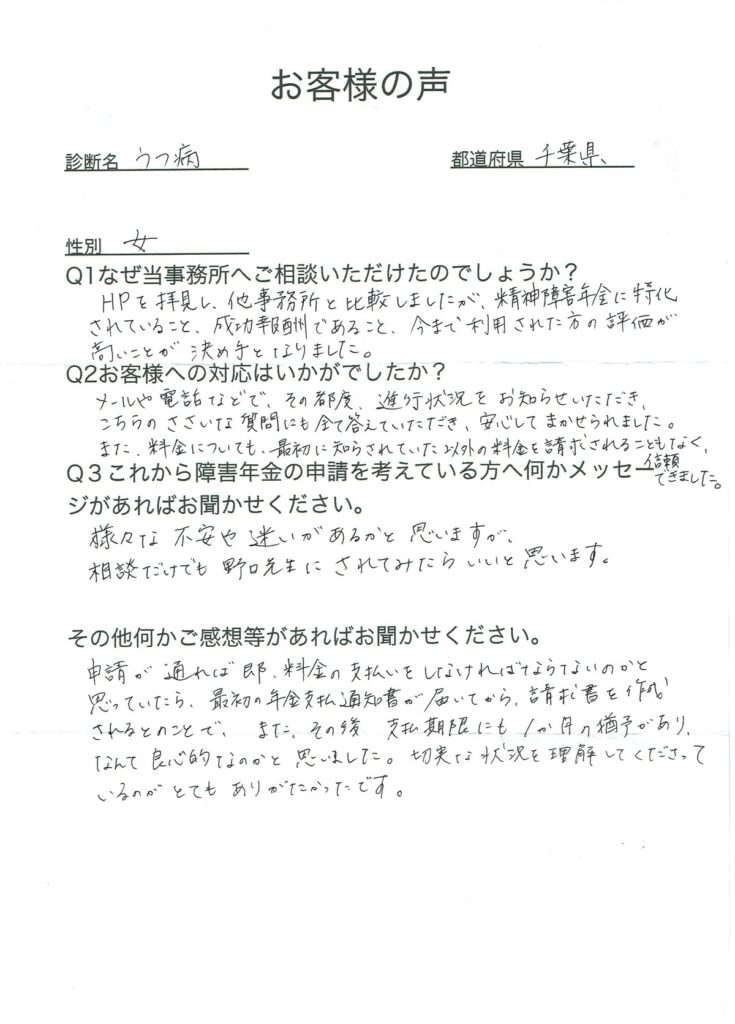 お客様の声
診断名 うつ病
都道府県 千葉県、
性別 女
Q1なぜ当事務所へご相談いただけたのでしょうか？
HPを拝見し、他事務所と比較しましたが、精神障害年金に特化
されていること、成功報酬であること、今まで利用された方の評価が
高いことが決め手となりました。
Q2お客様への対応はいかがでしたか？
メールや電話などで、その都度、進行状況をお知らせいただき、
こちらのささいな質問にも全て答えていただき、安心してまかせられました。
また、料金についても、最初に知らされていた以外の料金を請求されることもなく、
信頼
できました。
Q３これから障害年金の申請を考えている方へ何かメッセー
ジがあればお聞かせください。
様々な不安や迷いがあるかと思いますが、
相談だけでも野口先生にされてみたらいいと思います。
その他何かご感想等があればお聞かせください。
申請が通れば即、料金の支払いをしなければならないのかと
思っていたら、最初の年金支払通知書が届いてから、請求書を作成
されるとのことで、また、その後支払期限にも1か月の猶予があり、
なんて良心的なのかと思いました。切実な状況を理解してくださって
いるのがとてもありがたかったです。